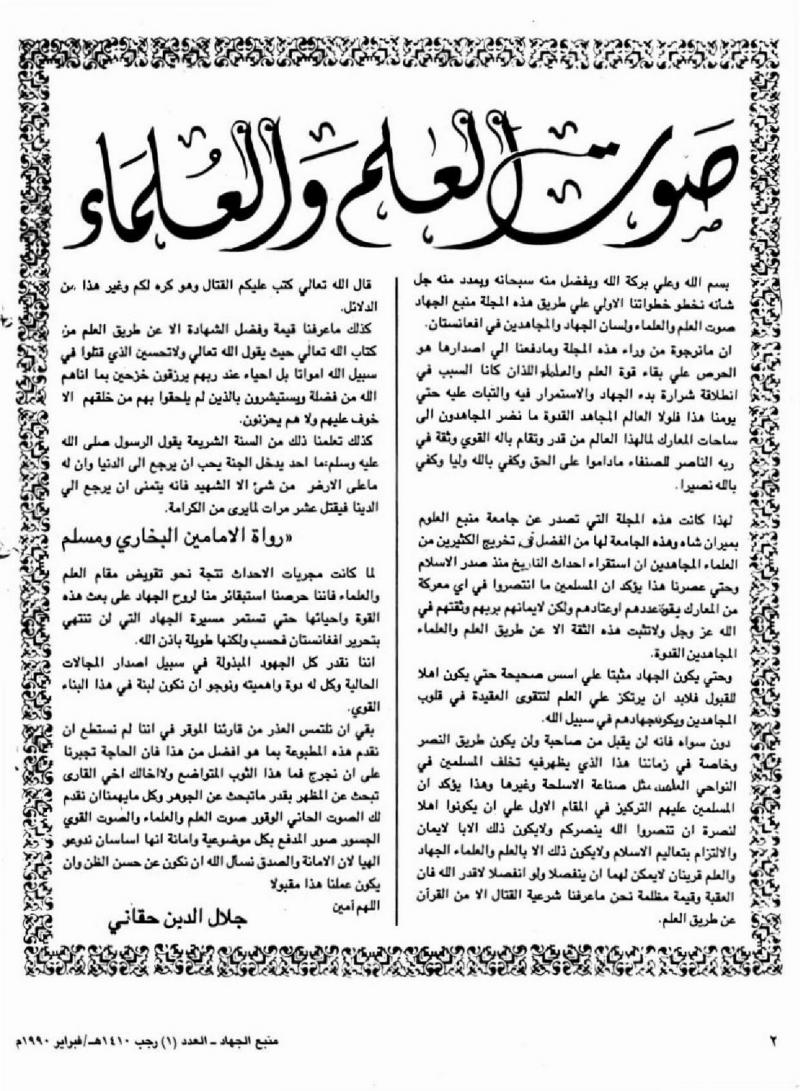 صوت العلم والعلماء
بسم الله وعلي بركة الله وبفضل منه سبحانه وبمدد منه جل
شأنه نخطو خطواتنا الاولي علي طريق هذه المجلة منبع الجهاد
صوت العلم والعلماء ولسان الجهاد والمجاهدين في افغانستان.
ان مانرجوة من وراء هذه المجلة ومادفعنا الي اصدارها هو
الحرص علي بقاء قوة العلم والعلماء اللذان كانا السبب في
انطلاقة شرارة بدء الجهاد والاستمرار فيه والثبات عليه حتي
يومنا هذا فلولا العالم المجاهد القدوة ما نضر المجاهدون الى
ساحات المعارك لمالهذا العالم من قدر وتقام باله القوي وثقة في
ربه الناصر للصنفاء ماداموا على الحق وكفي بالله وليا وكفي
بالله نصيرا.
لهذا كانت هذه المجلة التي تصدر عن جامعة منبع العلوم
بميران شاه وهذه الجامعة لها من الفضل في تخريج الكثيرين من
العلماء المجاهدين ان استقراء احداث التاريخ منذ صدر الاسلام
وحتي عصرنا هذا يؤكد ان المسلمين ما انتصروا في اي معركة
من المعارك بقوة عددهم اوعتادهم ولكن لايمانهم بربهم وثقتهم في
الله عز وجل ولاتثبت هذه الثقة الا عن طريق العلم والعلماء
المجاهدين القدوة.
وحتي يكون الجهاد مثبتا علي اسس صحيحة حتي يكون اهلا
للقبول فلابد ان يرتكز علي العلم لتتقوى العقيدة في قلوب
المجاهدين ويكون جهادهم في سبيل الله.
دون سواه فانه لن يقبل من صاحبة ولن يكون طريق النصر
وخاصة في زماننا هذا الذي يظهرفيه تخلف المسلمين في
النواحي العلميه مثل صناعة الاسلحة وغيرها وهذا يؤكد ان
المسلمين عليهم التركيز في المقام الاول علي ان يكونوا اهلا
لنصرة ان تنصروا الله ينصركم ولايكون ذلك الابا لايمان
والالتزام بتعاليم الاسلام ولايكون ذلك الا بالعلم والعلماء الجهاد
والعلم قرينان لايمكن لهما ان ينفصلا ولو انفصلا لاقدر الله فان
العقبة وقيمة مظلمة نحن ماعرفنا شرعية القتال الا من القرآن
عن طريق العلم.
قال الله تعالي كتب عليكم القتال وهو كره لكم وغير هذا من
الدلائل.
كذلك ماعرفنا قيمة وفضل الشهادة الا عن طريق العلم من
كتاب الله تعالي حيث يقول الله تعالي ولاتحسبن الذي قتلوا في
سبيل الله امواتا بل احياء عند ربهم يرزقون خزحين بما اتاهم
الله من فضلة ويستبشرون بالذين لم يلحقوا بهم من خلقهم الا
خوف عليهم ولا هم يحزنون.
كذلك تعلمنا ذلك من السنة الشريعة يقول الرسول صلى الله
عليه وسلم:ما احد يدخل الجنة يحب ان يرجع الى الدنيا وان له
ماعلى الارض من شئ الا الشهيد فانه يتمنى ان يرجع الي
الدينا فيقتل عشر مرات لمايرى من الكرامة.
«رواة الامامين البخاري ومسلم
لما كانت مجريات الاحداث تتجة نحو تقويض مقام العلم
والعلماء فاننا حرصنا استبقائر منا لروح الجهاد على بعث هذه
القوة واحيائها حتي تستمر مسيرة الجهاد التي لن تنتهي
بتحرير افغانستان فحسب ولكنها طويلة باذن الله.
اننا نقدر كل الجهود المبذولة في سبيل اصدار المجالات
الحالية وكل له دوة واهميته ونوجو ان نكون لبنة في هذا البناء
القوي.
بقي ان نلتمس العذر من قارئنا الموقر في اننا لم نستطع ان
نقدم هذه المطبوعة بما هو افضل من هذا فان الحاجة تجبرنا
على ان نجرج فما هذا الثوب المتواضع ولااخالك اخي القارى
تبحث عن المظهر بقدر ماتبحث عن الجوهر وكل مايهمناان نقدم
لك الصوت الحاني الوقور صوت العلم والعلماء والصوت القوي
الجسور صور المدفع بكل موضوعية وامانة انها اساسان ندوعو
الهيا لان الامانة والصدق نسأل الله ان نكون عن حسن الظن وان
يكون عملنا هذا مقبولا
اللهم أمين
جلال الدين حقاني
منبع الجهاد - العدد (١) رجب ١٤١٠هـ/فبراير ١٩٩٠م
٢